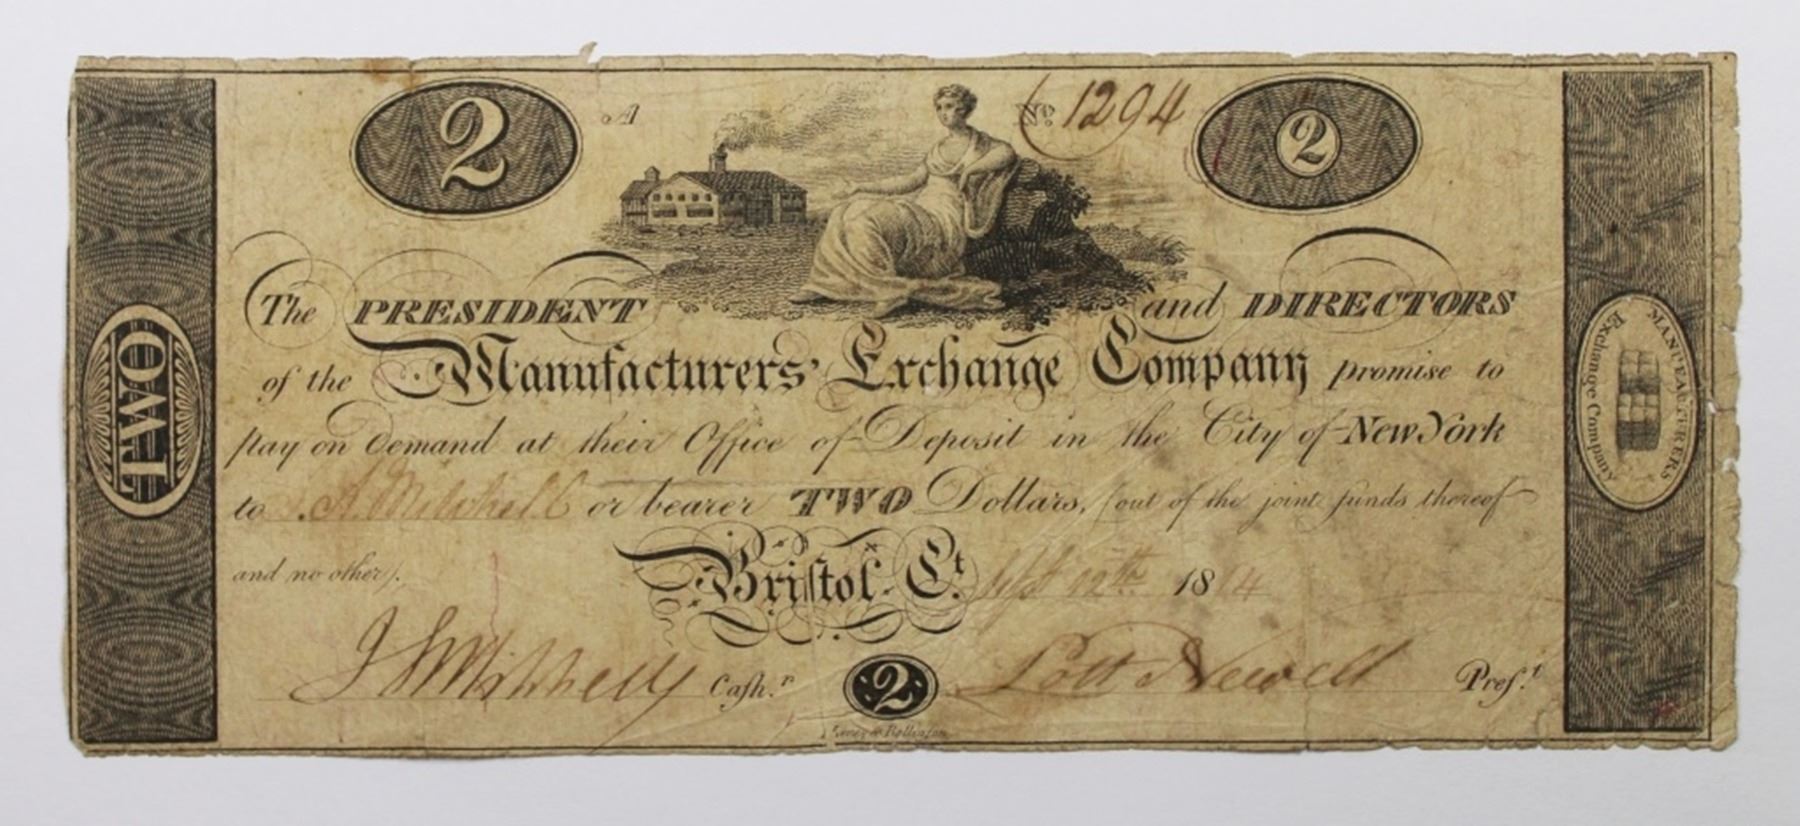 2 A No. 1294 2
The PRESIDENT and DIRECTORS
of the Manufacturers' Exchange Company promise to
pay on demand at their Office of Deposit in the City of New York
to Mitchell or bearer TWO Dollars, (out of the joint funds thereof
and no other). Bristol Ct. 12th 1814
Cash.r 2 Lott Newell Pres.t
TWO
MANUFACTURERS
Exchange Company